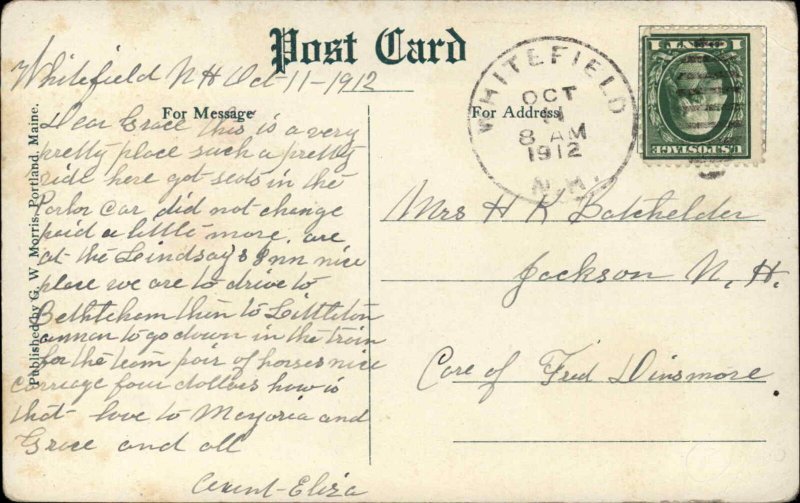 Post Card
Whitefield N H Oct-11-1912
For Message
Dear Grace this is a very
pretty place such a pretty
ride here got seats in the
Parlor Car did not change
paid a little more. are
at the Lindsay's Inn nice
place we are to drive to
Bethlehem then to Littleton
to go down in the train
for the team pair of horses nice
carriage four dollars how is
that - love to Marjoria and
Grace and all
Aunt-Eliza
Published by G. W. Morris, Portland, Maine.
For Address
WHITEFIELD
OCT
8 AM
1912
N.H.
U.S. POSTAGE
1
1
Mrs H K Batchelder
Jackson N. H.
Care of Fred Dinsmore